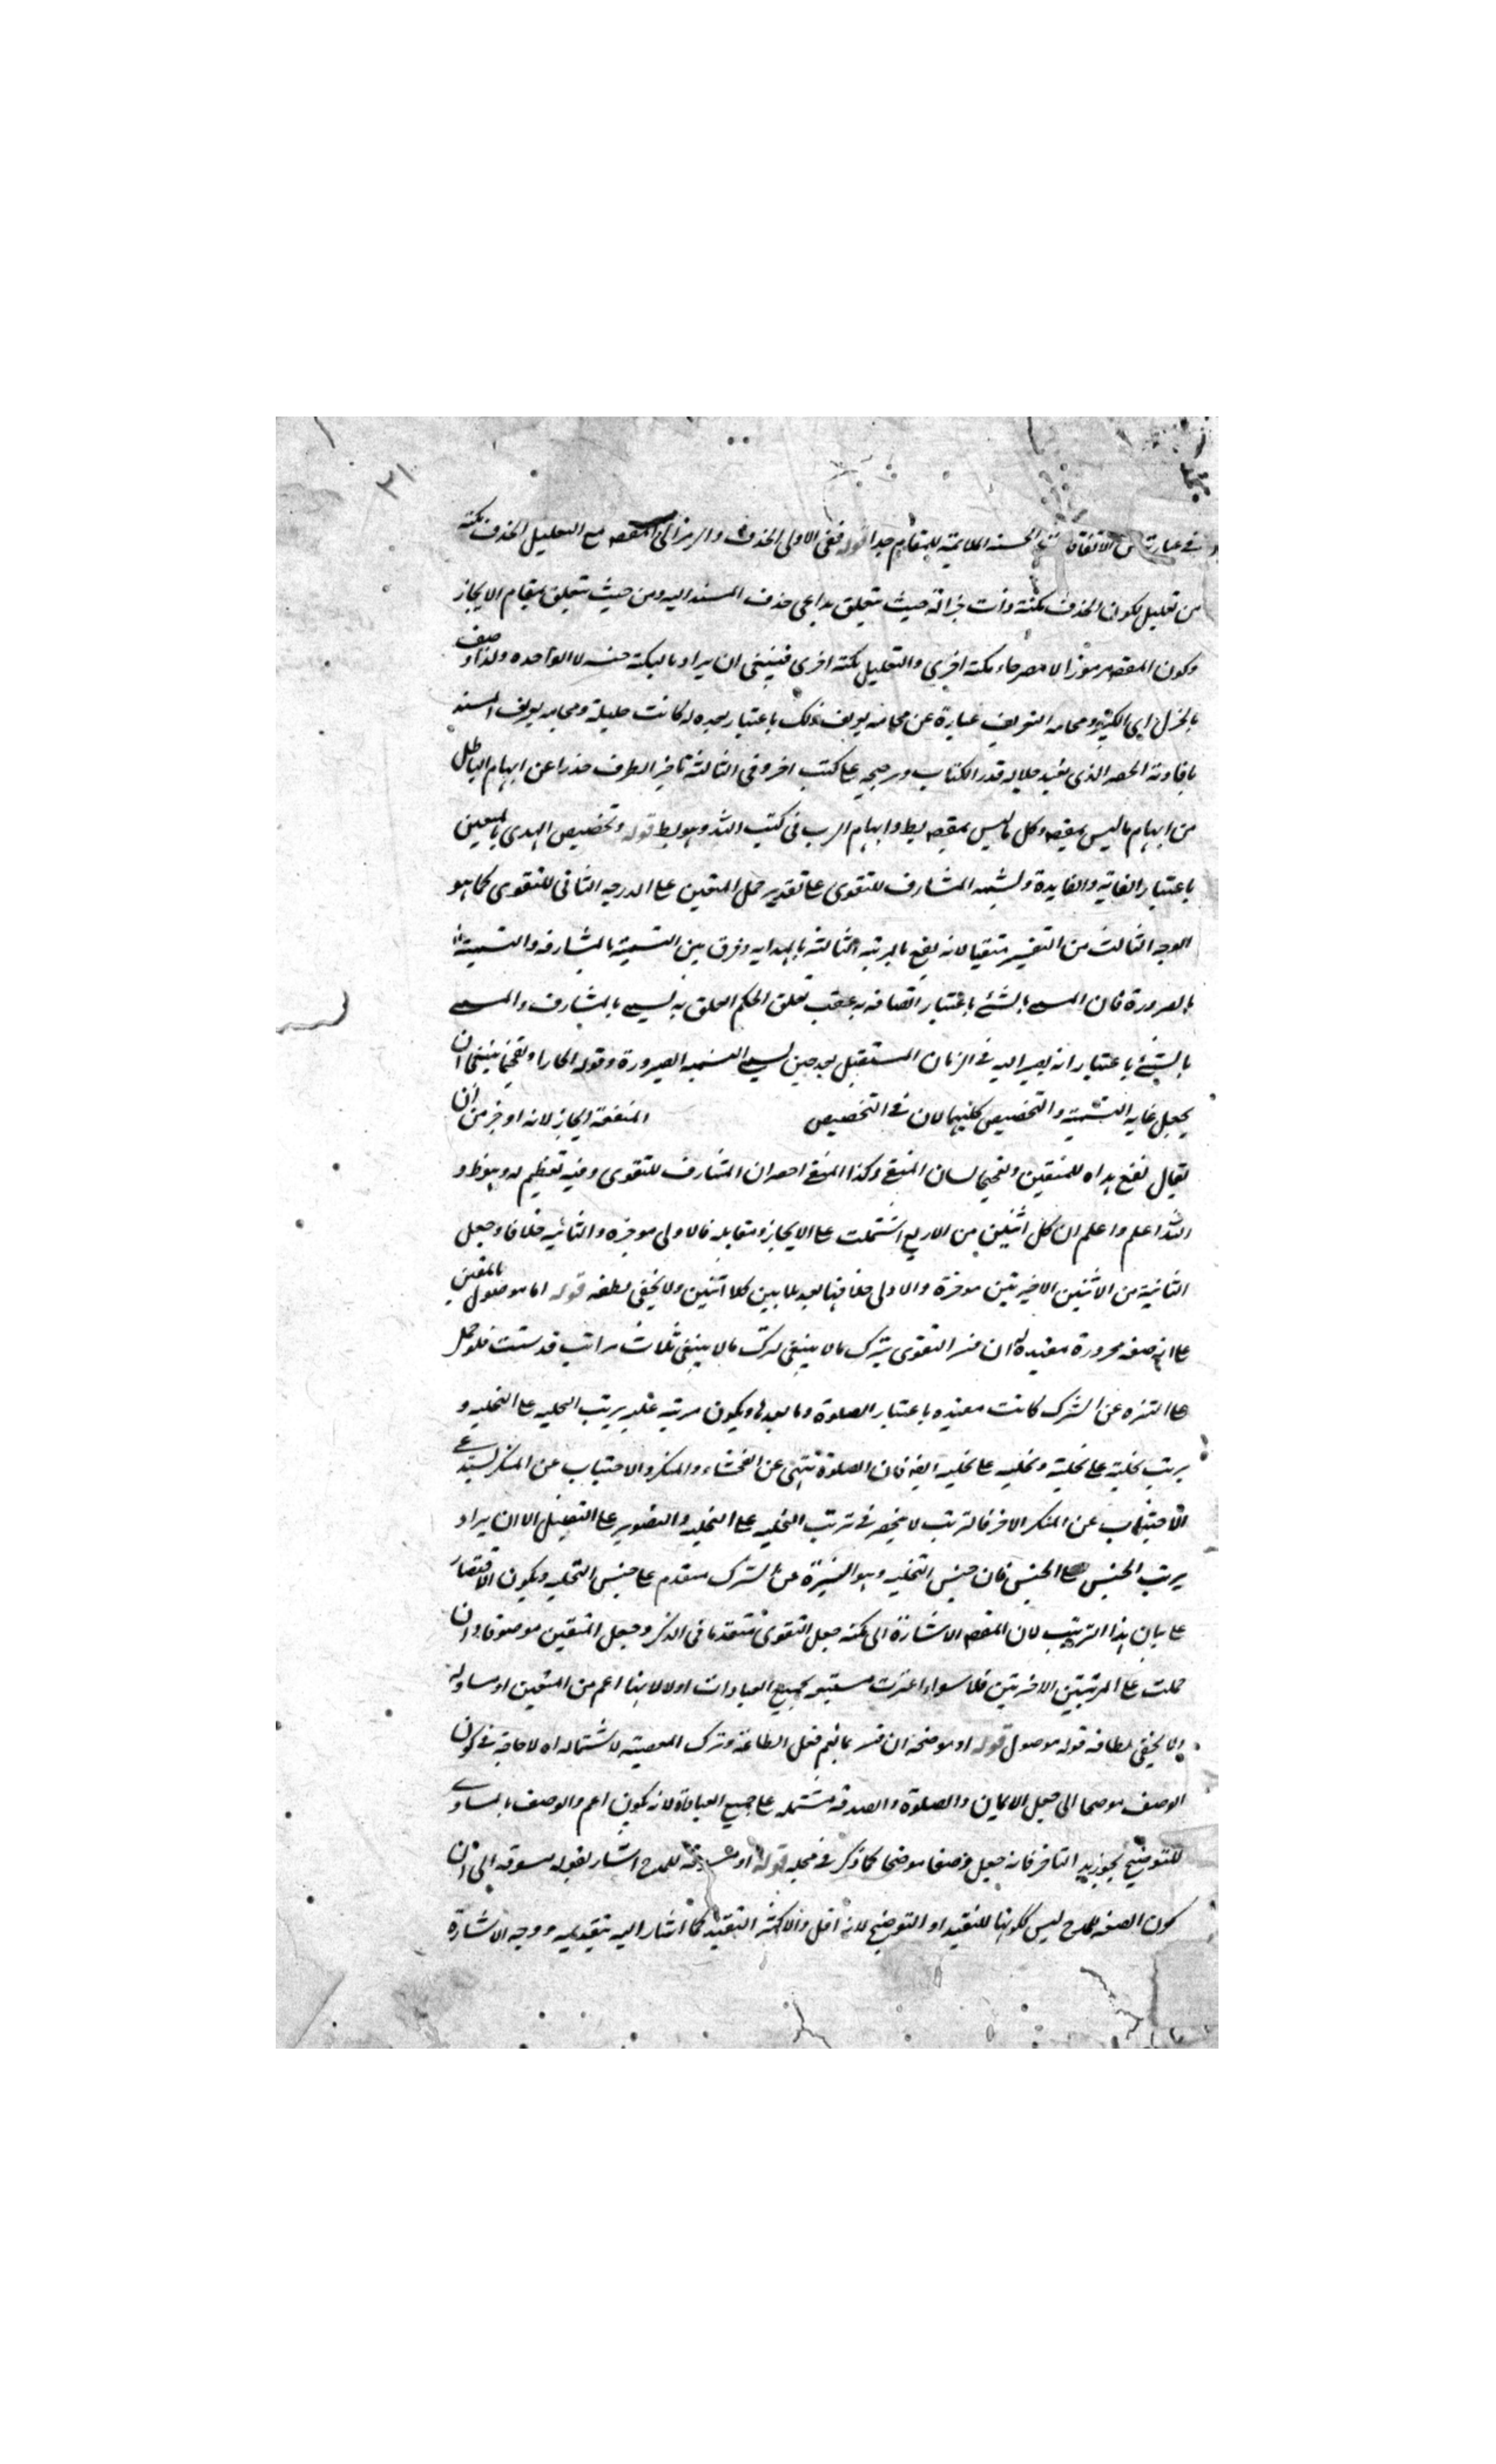 ٣١
في عبارته من الاتفاقات الحسنة الملايمة للمقام جدا قوله ففي الاولى الحذف والرمز الى المقصه مع التعليل الحذف نكتة
من تعليل لكون الحذف نكتة وذات جزالة حيث تتعلق بداعي حذف المسند اليه ومن حيث تتعلق بمقام الايجاز
وكون المقصه مرموزا لا مصرحا به نكتة اخرى والتعليل نكتة اخرى فينبغي ان يراد بالنكتة جنسه لا الواحدة ولذا وصف
بالجزل اي الكثير وفخامة التعريف عبارة عن فخامة تعريف ذلك باعتبار بعده له كانت جليلة وفخامة تعريف المسند
بافادته الحصر الذي يفيد جلالة قدر الكتاب ورجحه على كتب اخر وفي الثالثة تاخير الظرف حذرا عن ايهام الباطل
من ايهام ما ليس بمقصه وكل ما ليس بمقصه بط وايهام الريب في كتب الله وهو بط قوله وتخصيص الهدى بالمتقين
باعتبار الغاية والفايدة وتسمية المشارف للتقوى على تقدير حمل المتقين على الدرجة الثاني للتقوى كما هو
الوجه الثالث من التفسير متقيا لانه ينفع بالمرتبة الثالثة بالهداية وفرق بين التسمية بالمشارفة والتسمية
بالصيرورة فان المسمى بالشيء باعتبار اتصافه به عقب تعلق الحكم المعلق به يسمى بالمشارف والمسمى
بالشيء باعتبار انه يصير اليه في الزمان المستقبل بعد حين يسمى التسمية الصيرورة وقوله ايجازا وتفخيما ينبغي ان
يجعل غاية التسمية والتخصيص كليهما لان في التخصيص المنفعة ايجاز لانه اوجز من ان
يقال نفع هداه للمتقين وتفخيما لشان المتقي وكذا المنفع احصر ان المشارف للتقوى وفيه تعظيم له وهو ظ و
الله اعلم واعلم ان كل اثنين من الاربع اشتملت على الايجاز ومقابله فالاولى موجزة والثانية خلافا وجعل
الثانية من الاثنين الاخيرتين موجزة والاولى خلافها تعديلا بين كلا اثنين ولا يخفى لطفه قوله اما موصول بالمتقين
على انه صفة مجرورة مقيدة له ان فسر التقوى بترك ما لا ينبغي لترك ما لا ينبغي ثلاث مراتب قد سبقت فلو حمل
على التنزه عن الشرك كانت مقيدة باعتبار الصلوة وما بعدها ويكون مرتبة عليه ترتب التحلية على التخلية و
يرتب تحلية على تحلية وتخلية على تخلية ايضه فان الصلوة تنهى عن الفحشاء والمنكر والاجتناب عن المنكر يستدعي
الاجتناب عن المنكر الاخر فالترتب لا ينحصر في ترتب التحلية على التخلية والتصوير على التصقيل الا ان يراد
يرتب الجنس على الجنس فان جنس التخلية وهو التنزه عن الشرك مقدم على جنس التحلية ويكون الاقتصار
على بيان هذا الترتيب لان المقصه الاشارة الى نكتة جعل التقوى متقدما في الذكر وجعل المتقين موصوفا وان
حملت على المرتبتين الاخرتين فلا سواء اعتبرت مستتبعة لجميع العبادات اولا لانها اعم من المتقين او مساوله
ولا يخفى لطافة قوله موصول قوله او موضحة ان فسر بما يعم فعل الطاعة وترك المعصية لاشتماله اه لا حاجة في كون
الوصف موضحا الى جعل الايمان والصلوة والصدقة مشتملة على جميع العبادة لانه يكون اعم والوصف المساوي
للتوضيح كجوز زيد التاجر فانه جعل وصفا موضحا كما ذكر في محله قوله او مسوقة للمدح اشار بقوله مسوقة الى ان
كون الصفة للمدح ليس لكونها للتقييد او التوضيح لانه اقل والاكثر التقييد كما اشار اليه بتقديمه ووجه الاشارة